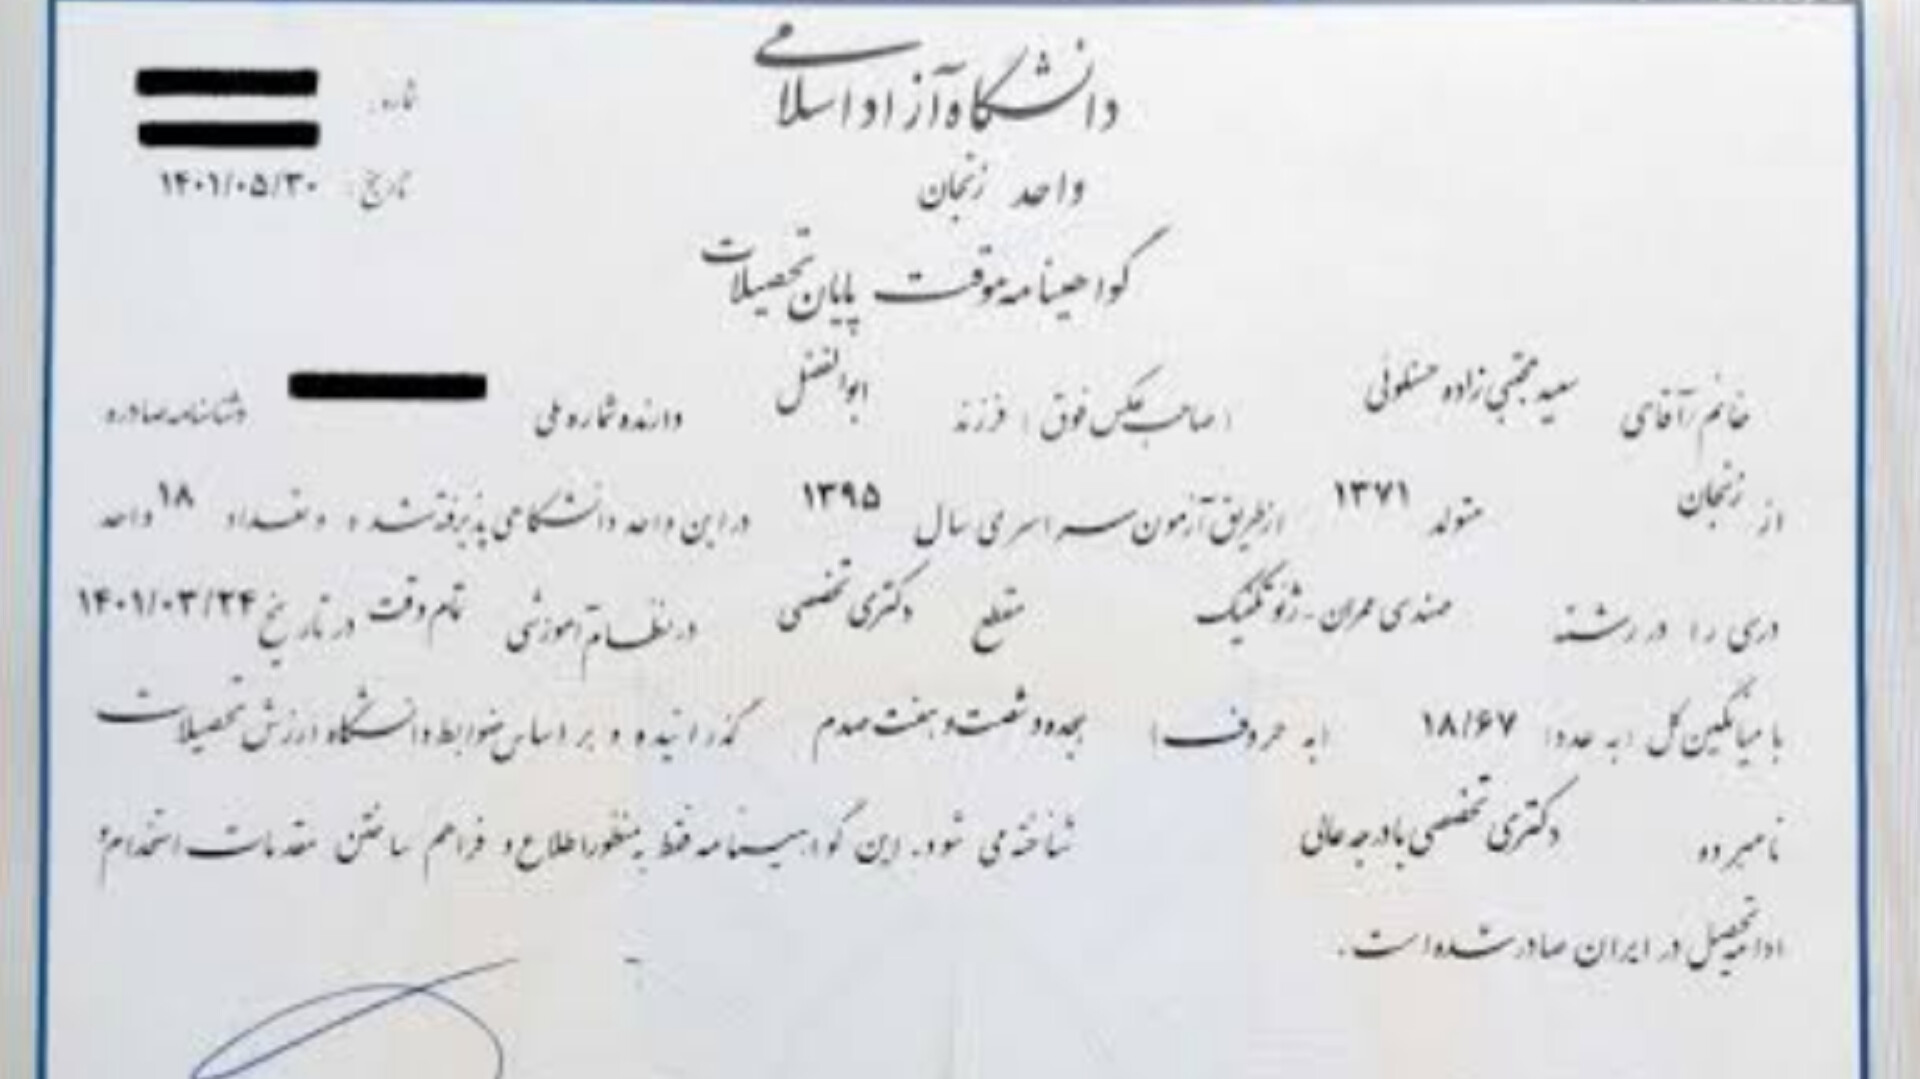 دانشگاه آزاد اسلامی
شماره:
تاریخ: ۱۴۰۱/۰۵/۳۰
واحد زنجان
گواهینامه موقت پایان تحصیلات
خانم/آقای سعید مجتبی زاده حسنلوئی (صاحب عکس فوق) فرزند ابوالفضل دارنده شماره ملی وشناسنامه صادره
از زنجان متولد ۱۳۷۱ از طریق آزمون سراسری سال ۱۳۹۵ در این واحد دانشگاهی پذیرفته شده و تعداد ۱۸ واحد
درسی را در رشته مهندسی عمران - ژئوتکنیک مقطع دکتری تخصصی در نظام آموزشی تمام وقت در تاریخ ۱۴۰۱/۰۳/۲۴
با میانگین کل (به عدد) ۱۸/۶۷ (به حروف) هجده و شصت و هفت صدم گذرانیده و بر اساس ضوابط دانشگاه ارزش تحصیلات
نامبرده دکتری تخصصی با درجه عالی شناخته می شود. این گواهینامه فقط به منظور اطلاع و فراهم ساختن مقدمات استخدام و
ادامه تحصیل در ایران صادر شده است.